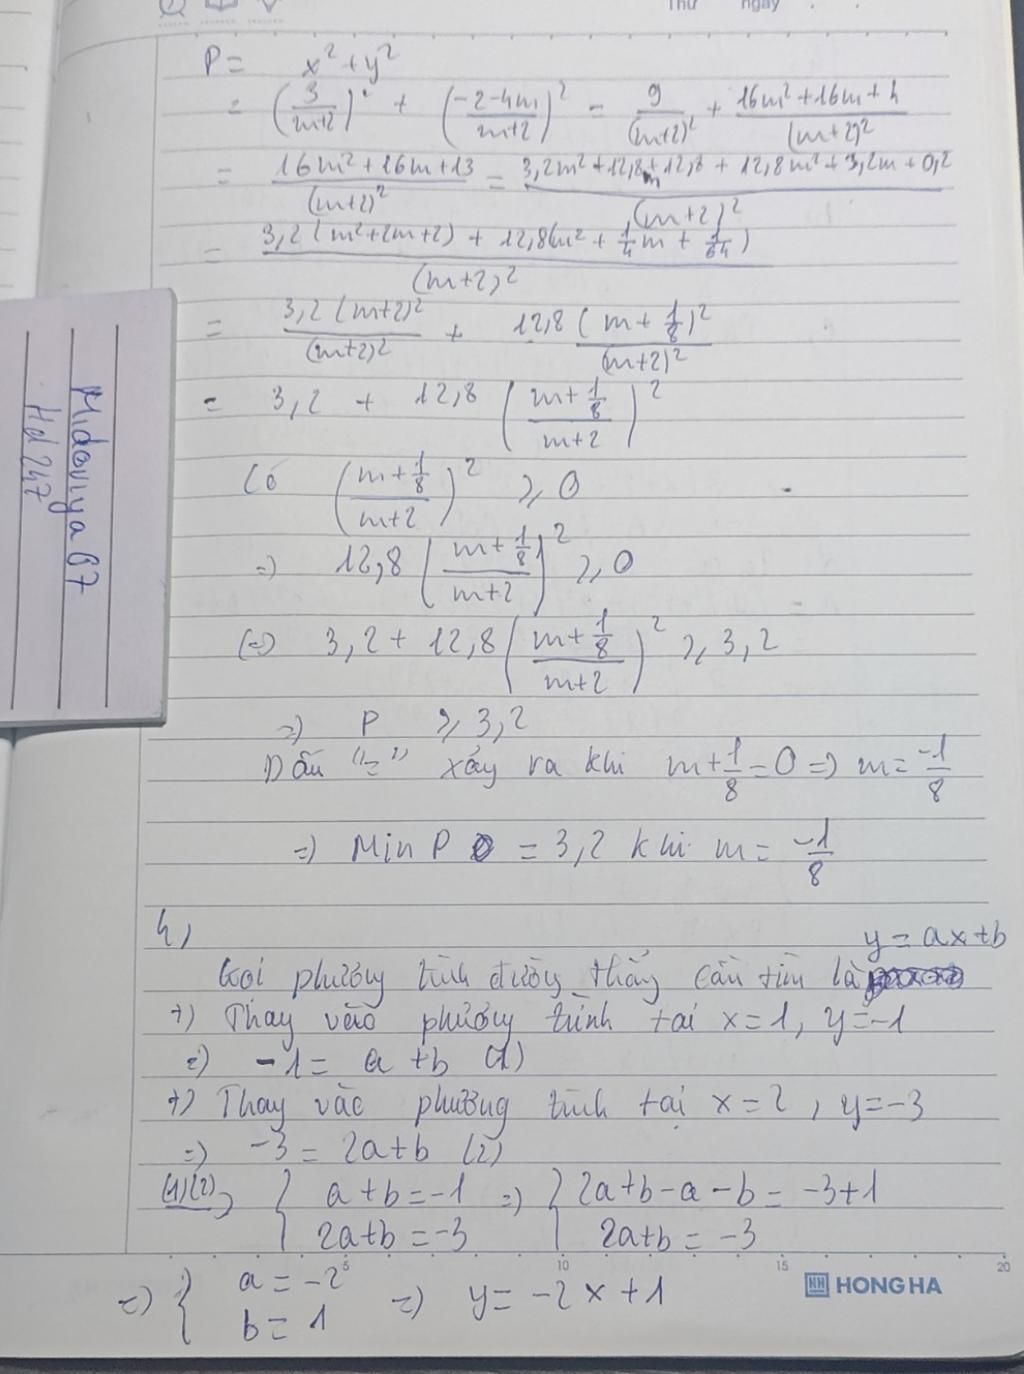 Thứ ngày
P = x² + y²
= (3/(m+2))² + ((-2-4m)/(m+2))² = 9/(m+2)² + (16m²+16m+4)/(m+2)²
= (16m²+16m+13)/(m+2)² = (3,2m²+12,8m+12,8 + 12,8m²+3,2m+0,2)/(m+2)²
= (3,2(m²+2m+2) + 12,8(m² + 1/4 m + 1/64))/(m+2)²
= 3,2(m+2)²/(m+2)² + 12,8(m+1/8)²/(m+2)²
= 3,2 + 12,8((m+1/8)/(m+2))²
Có ((m+1/8)/(m+2))² ⩾ 0
=) 12,8((m+1/8)/(m+2))² ⩾ 0
(=) 3,2 + 12,8((m+1/8)/(m+2))² ⩾ 3,2
=) P ⩾ 3,2
Dấu "=" xảy ra khi m+1/8=0 =) m = -1/8
=) Min P = 3,2 khi m = -1/8
4,
y = ax+b
Gọi phương trình đường thẳng cần tìm là
+) Thay vào phương trình tại x=1, y=-1
=) -1 = a+b (1)
+) Thay vào phương trình tại x=2, y=-3
=) -3 = 2a+b (2)
(1)(2) =) { a+b=-1 =) { 2a+b-a-b=-3+1
2a+b=-3 2a+b=-3
=) { a=-2 =) y=-2x+1
b=1
5 10 15 20
HONG HA
Midoriya 07
Hd 247